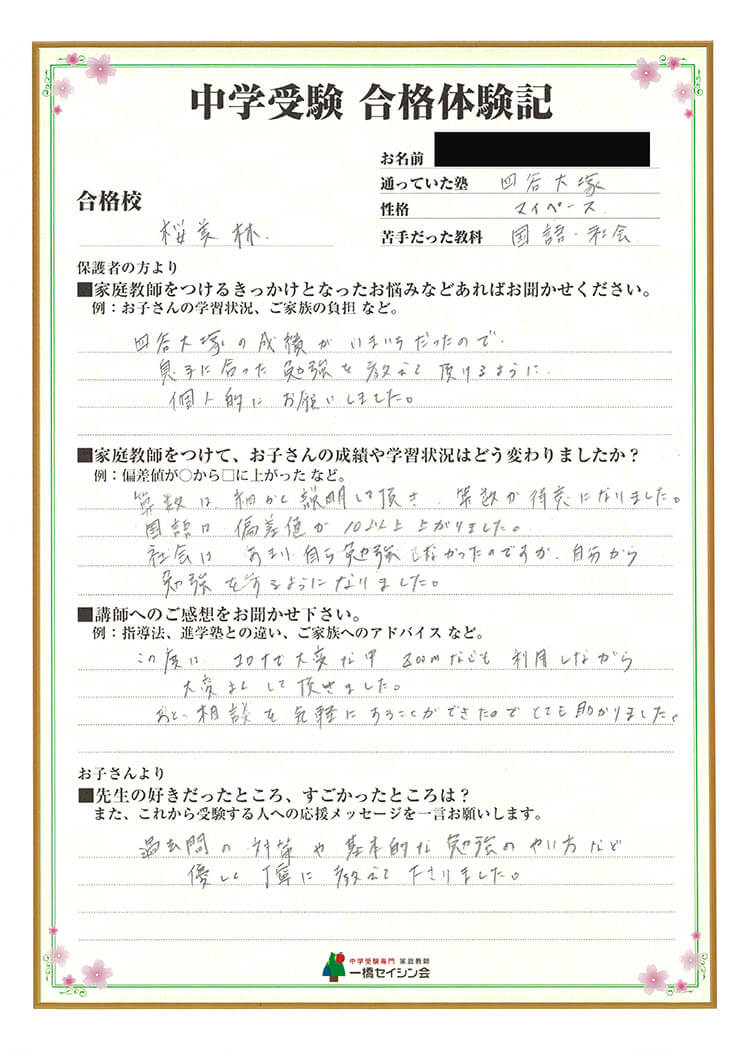 中学受験 合格体験記
お名前
通っていた塾 四谷大塚
合格校
性格 マイペース
桜美林
苦手だった教科 国語・社会
保護者の方より
■家庭教師をつけるきっかけとなったお悩みなどあればお聞かせください。
例：お子さんの学習状況、ご家族の負担 など。
四谷大塚の成績がいまいちだったので
息子に合った勉強を教えて頂けるように
個人的にお願いしました。
■家庭教師をつけて、お子さんの成績や学習状況はどう変わりましたか？
例：偏差値が○から□に上がった など。
算数は、細かく説明して頂き、算数が得意になりました。
国語は 偏差値が 10以上 上がりました。
社会は あまり自ら勉強しなかったのですが、自分から
勉強をするようになりました。
■講師へのご感想をお聞かせ下さい。
例：指導法、進学塾との違い、ご家族へのアドバイス など。
この度は、コロナで大変な中 Zoomなども 利用しながら
大変よくして頂きました。
相談を気軽にすることができたので とても助かりました。
お子さんより
■先生の好きだったところ、すごかったところは？
また、これから受験する人への応援メッセージを一言お願いします。
過去問の対策や基本的な勉強のやり方など
優しく丁寧に教えて下さりました。
中学受験専門 家庭教師
一橋セイシン会